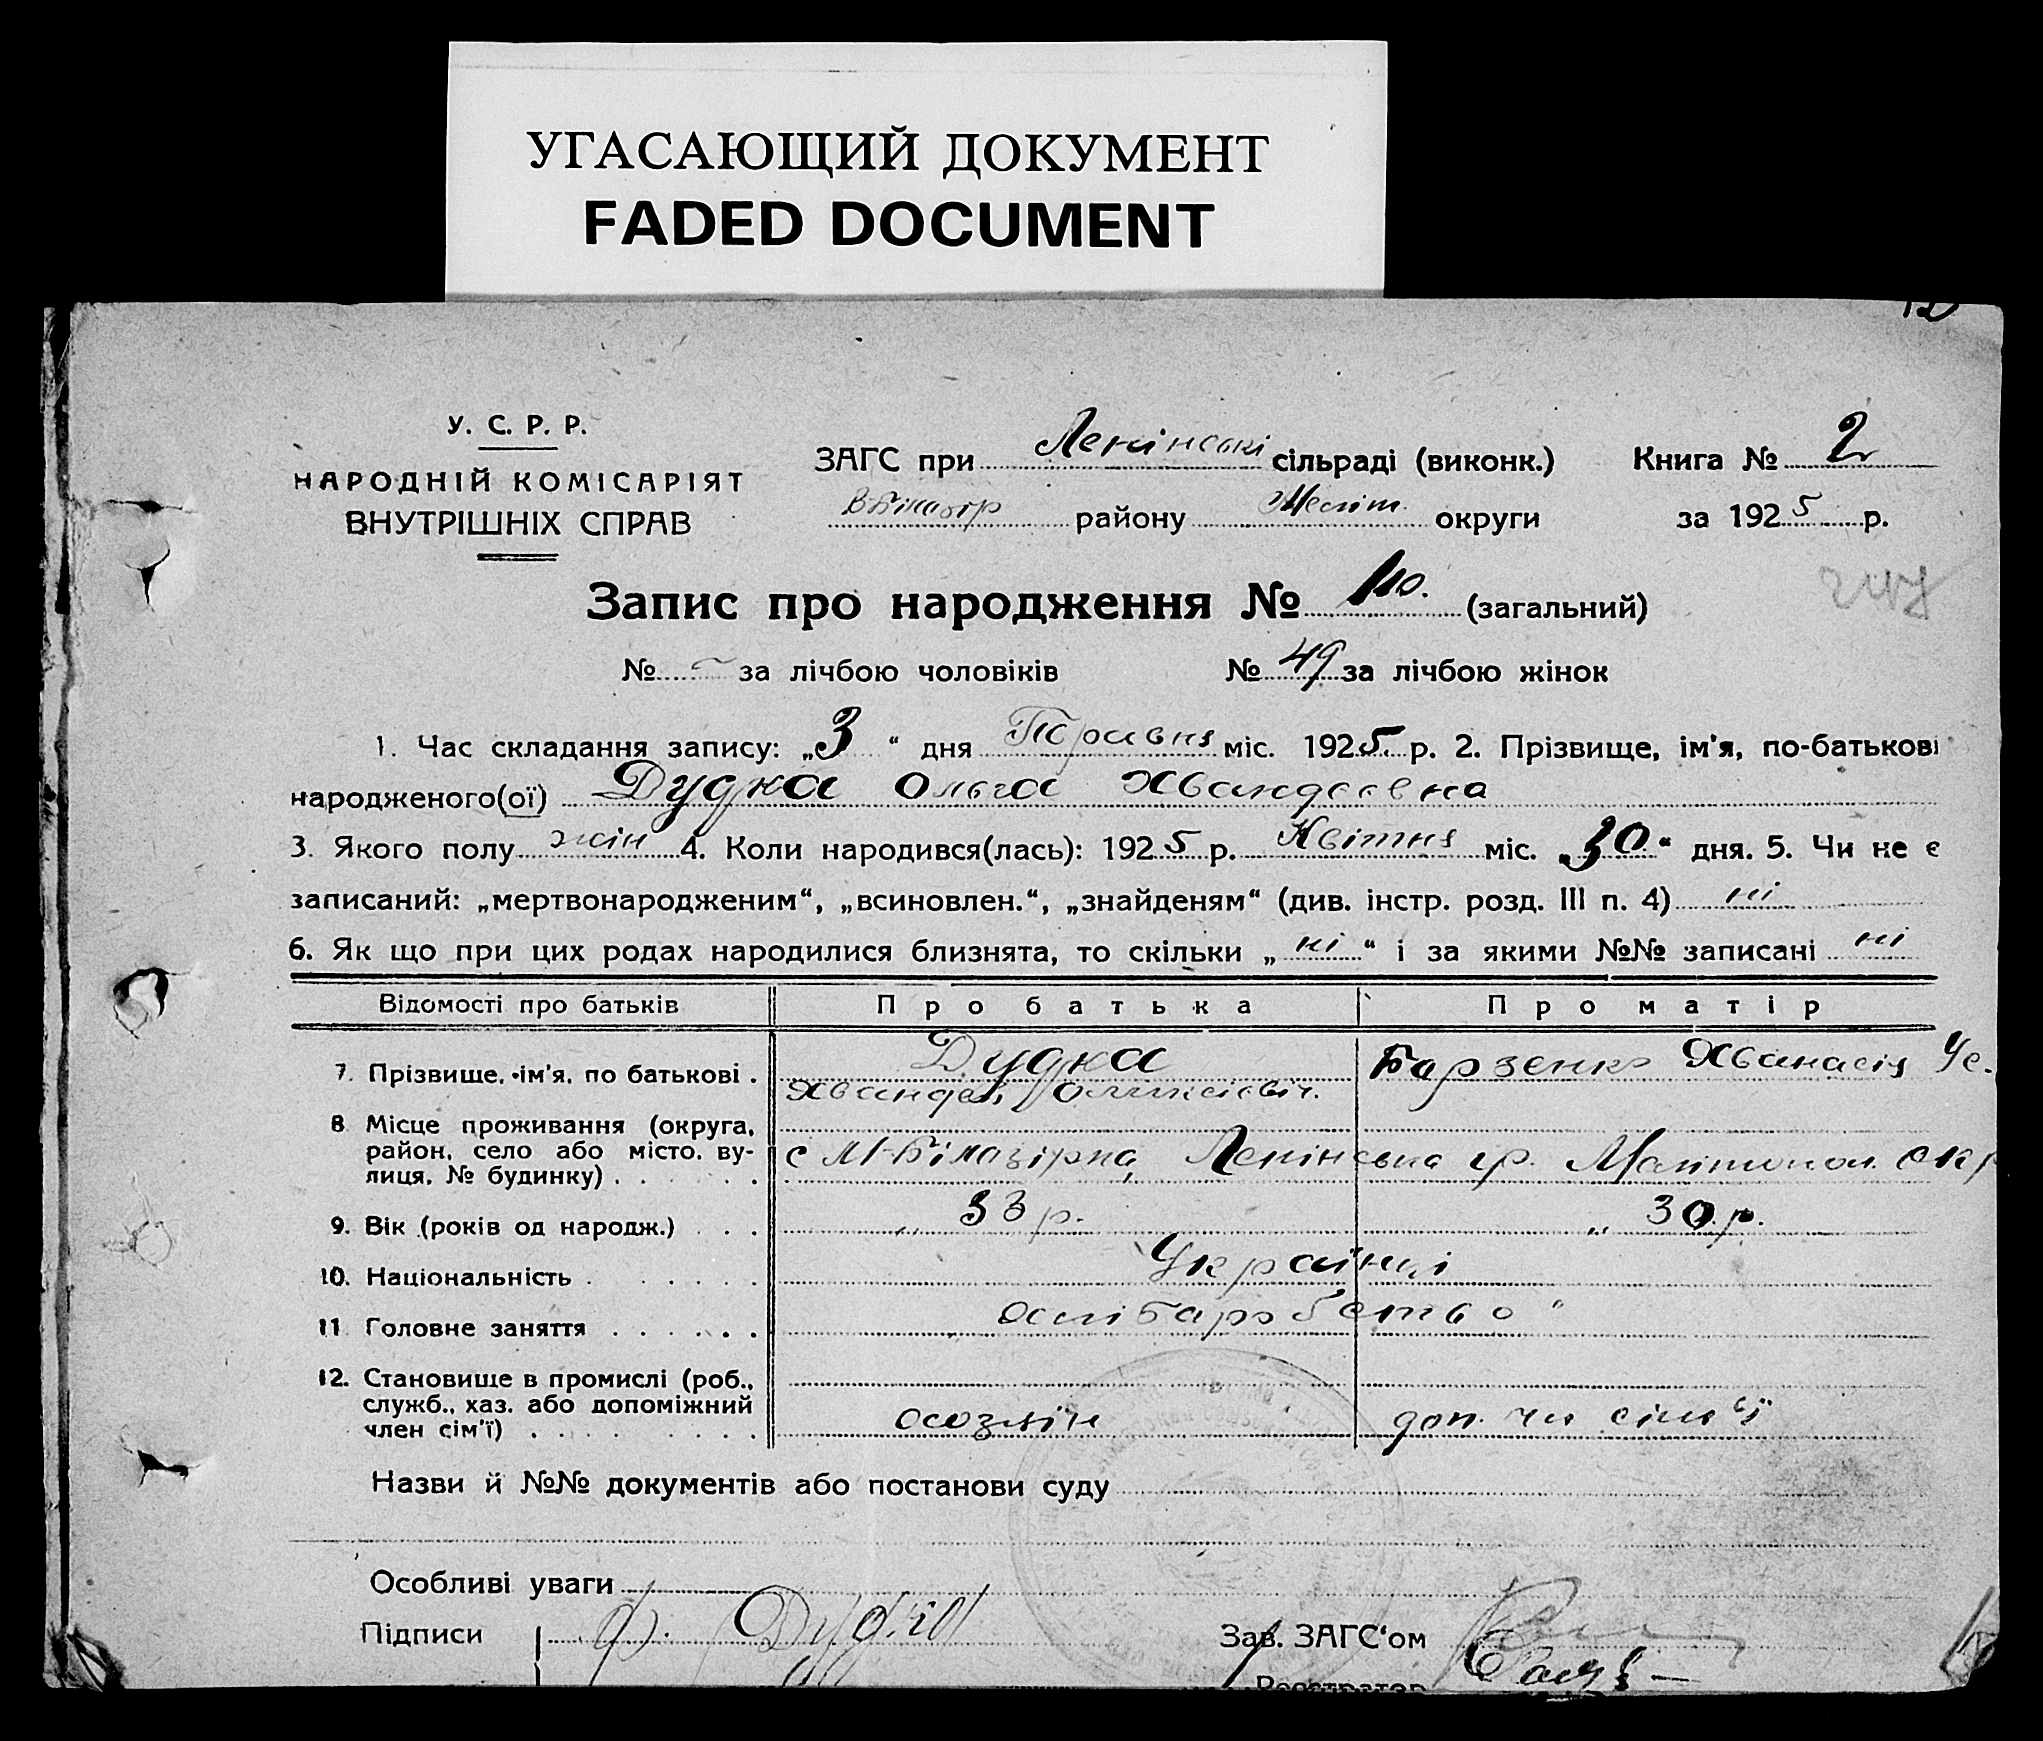 УГАСАЮЩИЙ ДОКУМЕНТ
FADED DOCUMENT
У. С. Р. Р.
НАРОДНІЙ КОМІСАРІЯТ
ВНУТРІШНІХ СПРАВ
ЗАГС при Ленінські сільраді (виконк.) Книга № 2
району Меліт. округи за 1925 р.
Запис про народження № 110. (загальний)
№ – за лічбою чоловіків № 49 за лічбою жінок
1. Час складання запису: „3“ дня Травня міс. 1925 р. 2. Прізвище, ім'я, по-батькові
народженого(ої) Дудка Ольга Хвандеевна
3. Якого полу жін 4. Коли народився(лась): 1925 р. Квітня міс. „30“ дня. 5. Чи не є
записаний: „мертвонародженим“, „всиновлен.“, „знайденям“ (див. інстр. розд. III п. 4) ні
6. Як що при цих родах народилися близнята, то скільки „ні“ і за якими №№ записані ні
Відомості про батьків Про батька Про матір
7. Прізвище, ім'я, по батькові . Дудка Хвандей Оликсієвіч. Барзенко Хванасія Ус.
8 Місце проживання (округа,
район, село або місто, ву-
лиця, № будинку) . с М-Білазірка Ленінська гр. Мелітопол. окр
9. Вік (років од народж.) . . . „ 33 р. „ 30 р.
10. Національність . Українці
11 Головне заняття . . . . . . хлібаробство
12. Становище в промислі (роб.,
служб., хаз. або допоміжний
член сім'ї) . хозяін доп. чл сім'ї
Назви й №№ документів або постанови суду
Особливі уваги
Підписи Ф. Дудка Зав. ЗАГС'ом
Реєстратор